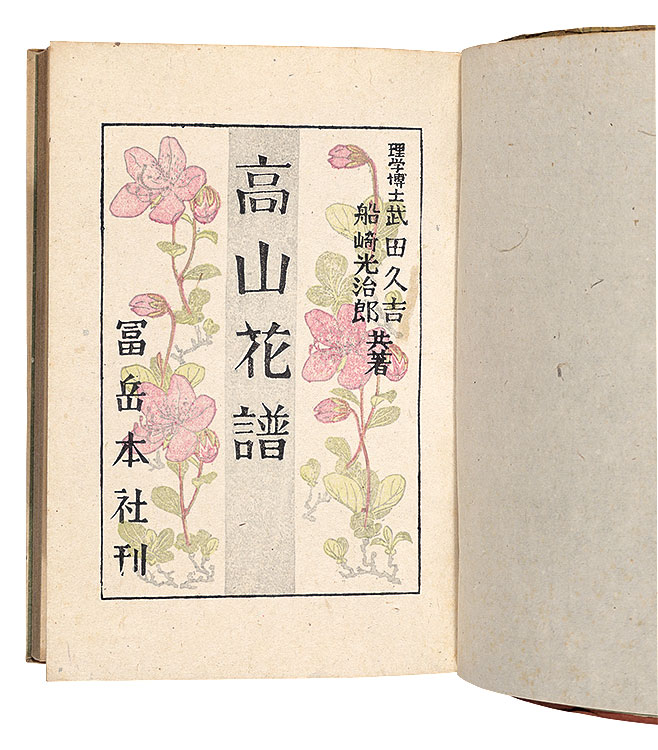 理学博士武田久吉
船崎光治郎
共著
高山花譜
冨岳本社刊